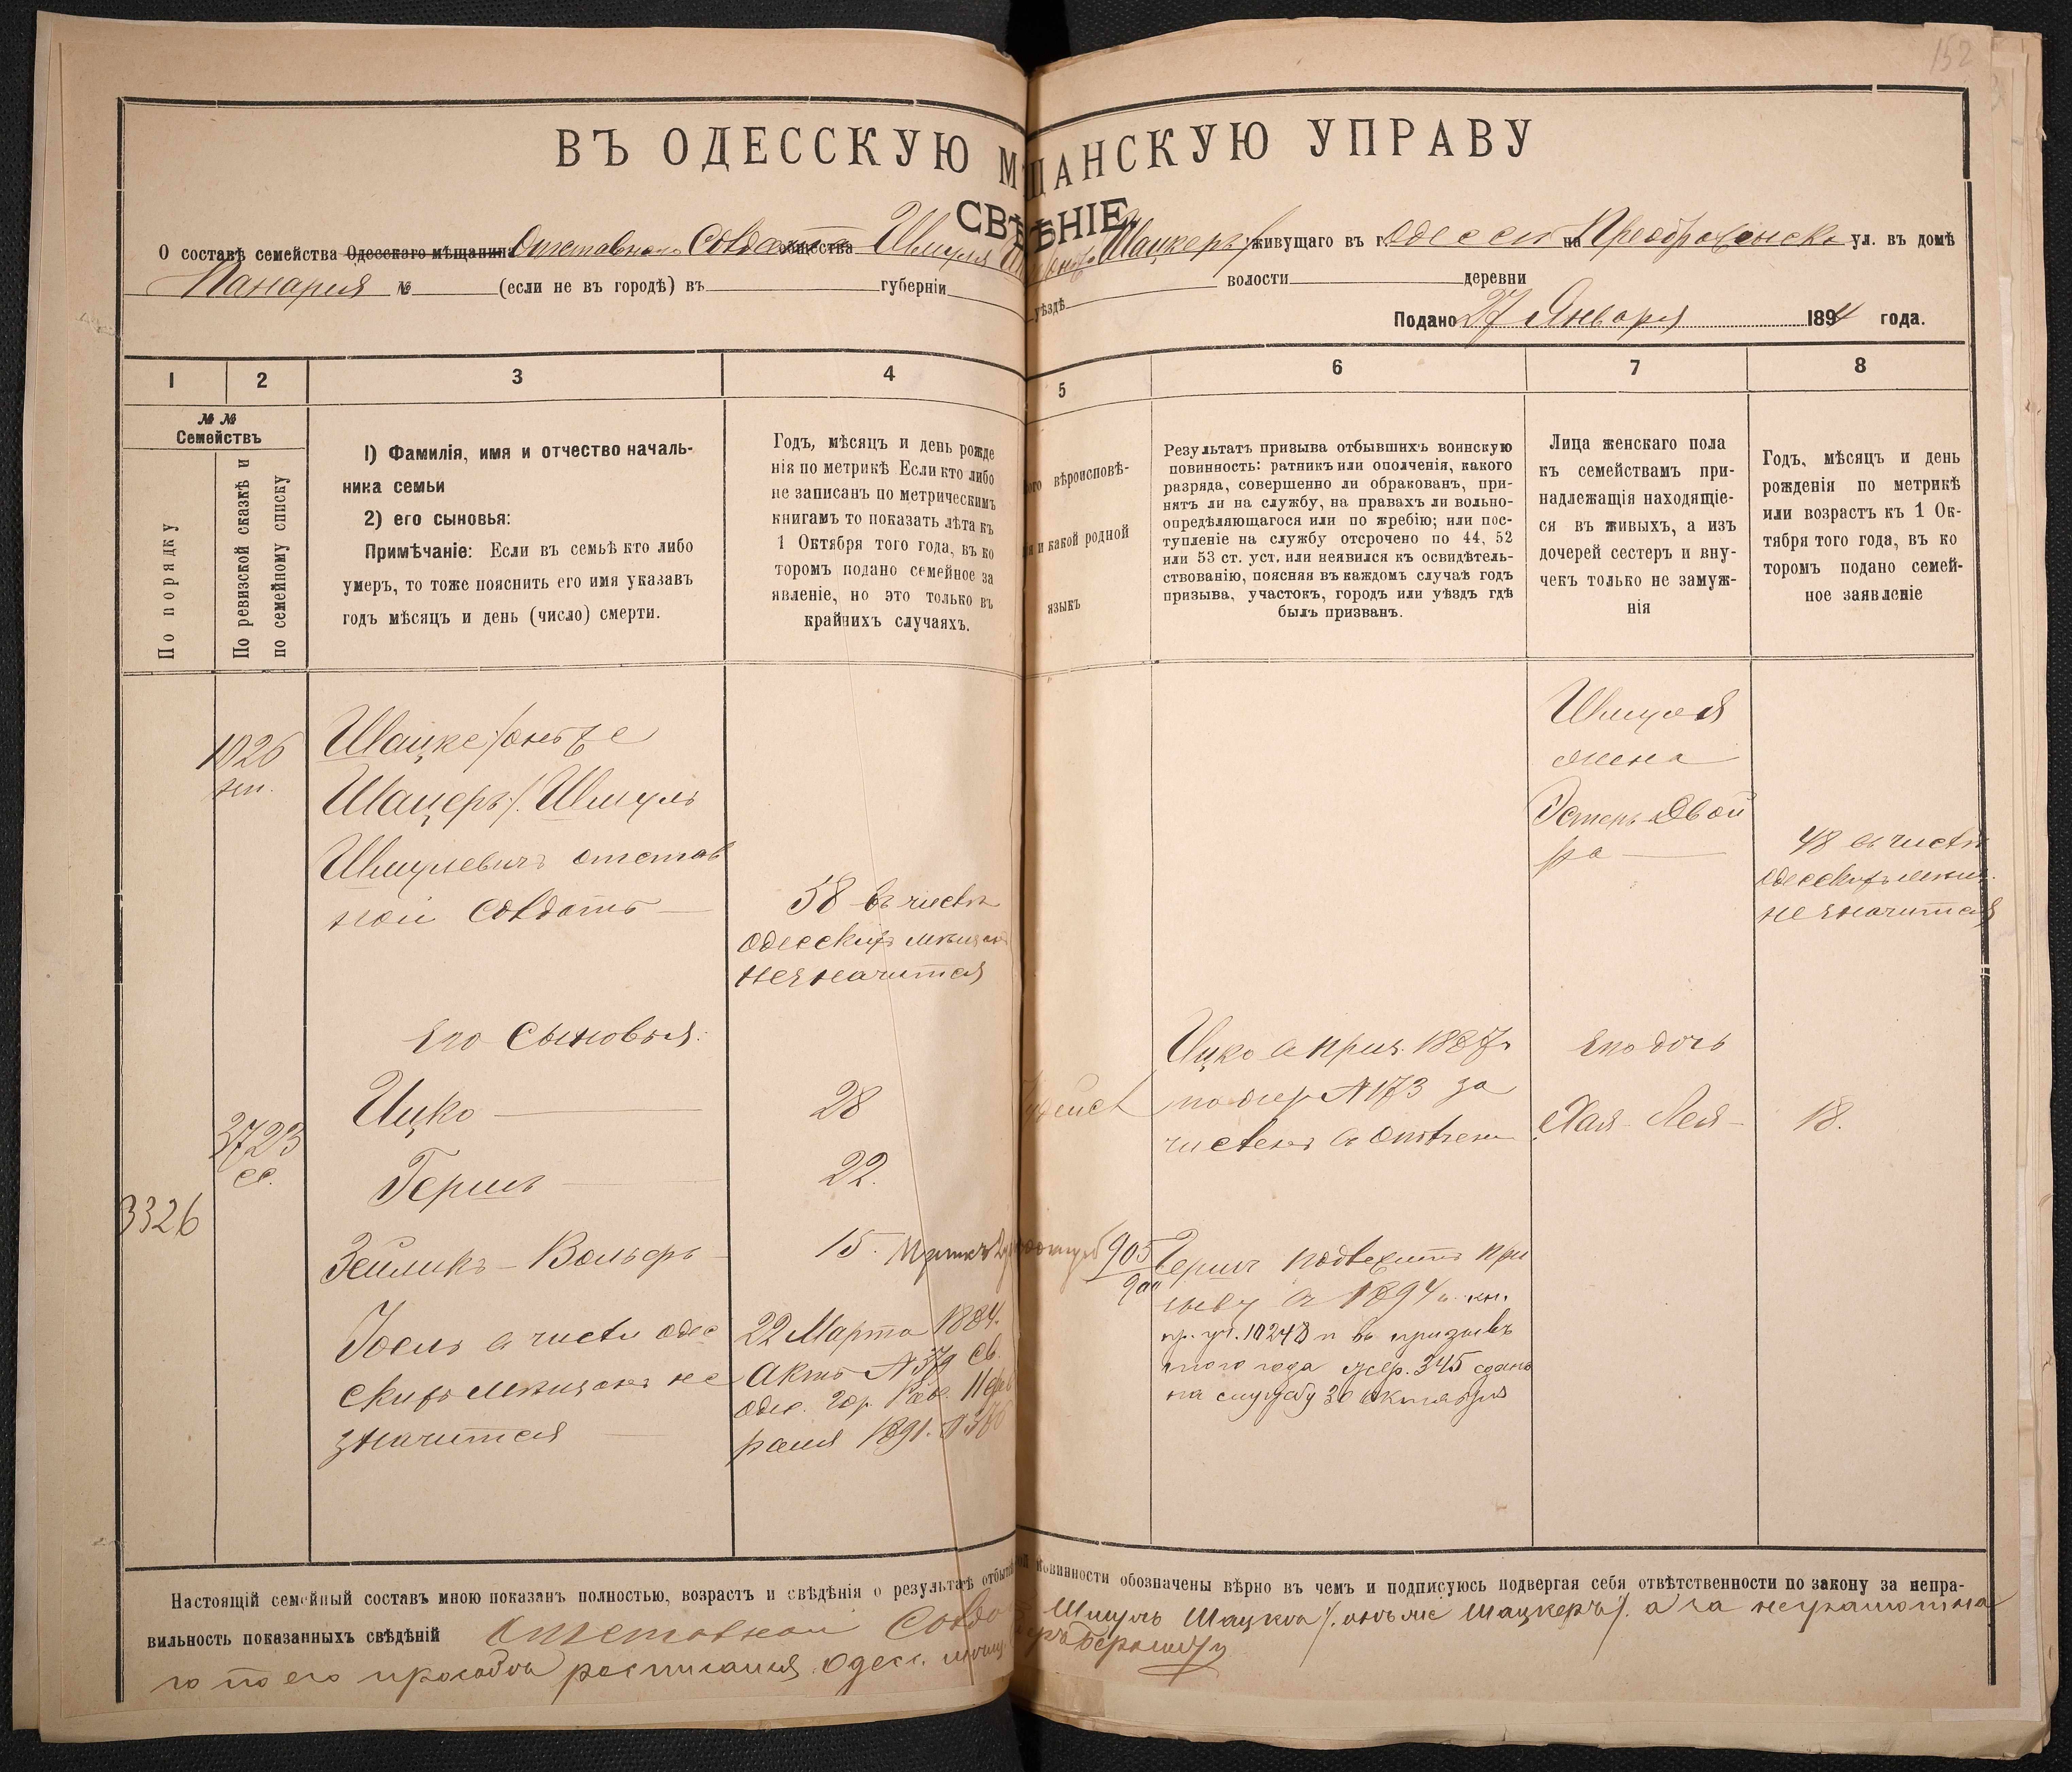 152
ВЪ ОДЕССКУЮ МѢЩАНСКУЮ УПРАВУ
СВѢДѢНІЕ
О составѣ семейства Одесскаго мѣщанина Отставного Солдата общества Шмуля Шацкеръ/ живущаго въ г. Одессѣ на Преображенской ул. въ домѣ
Панарія № (если не въ городѣ) въ губерніи уѣздѣ волости деревни
Подано 27 Января 1894 года.
1 2 3 4 5 6 7 8
№ №
Семействъ
По порядку
По ревизской сказкѣ и
по семейному списку
1) Фамилія, имя и отчество началь-
ника семьи
2) его сыновья:
Примѣчаніе: Если въ семьѣ кто либо
умеръ, то тоже пояснить его имя указавъ
годъ мѣсяцъ и день (число) смерти.
Годъ, мѣсяцъ и день рожде
нія по метрикѣ Если кто либо
не записанъ по метрическимъ
книгамъ то показать лѣта къ
1 Октября того года, въ ко
торомъ подано семейное за
явленіе, но это только въ
крайнихъ случаяхъ.
вѣроисповѣ-
и какой родной
языкъ
Результатъ призыва отбывшихъ воинскую
повинность: ратникъ или ополченія, какого
разряда, совершенно ли обракованъ, при-
нятъ ли на службу, на правахъ ли вольно-
опредѣляющагося или по жребію; или пос-
тупленіе на службу отсрочено по 44, 52
или 53 ст. уст. или неявился къ освидѣтель-
ствованію, поясняя въ каждомъ случаѣ годъ
призыва, участокъ, городъ или уѣздъ гдѣ
былъ призванъ.
Лица женскаго пола
къ семействамъ при-
надлежащія находящіе-
ся въ живыхъ, а изъ
дочерей сестеръ и вну-
чекъ только не замуж-
нія
Годъ, мѣсяцъ и день
рожденія по метрикѣ
или возрастъ къ 1 Ок-
тября того года, въ ко
торомъ подано семей-
ное заявленіе
1026
Шацке/онъ же
Шацеръ/. Шмуль
Шмулевичъ отстав
ной солдатъ
58 въ числѣ
одесскихъ мѣщанъ
не значится
Шмуля
жена
Эстеръ Двой
ра
48 въ числѣ
одесскихъ мѣщ.
не значится
Его сыновья:
3723
сс.
Ицко
28
Ицко въ приз. 1887 г.
по жер № 173 за
численъ въ ополчен
Его дочь
Хая-Лея
18.
Гершъ
22.
3326
Зейликъ-Вольфъ
15.
905
Гершъ подлежитъ при
зыву въ 1894 г. кн.
пр. уч. 10248 и въ призывъ
того года жер. 345 сданъ
на службу 30 октября
Іосель въ числѣ одес
скихъ мѣщанъ не
значится
22 Марта 1884.
Актъ № 379 св.
одес. гор. Рав.
1891.
Настоящій семейный составъ мною показанъ полностью, возрастъ и свѣдѣнія о результатѣ отбытія повинности обозначены вѣрно въ чемъ и подписуюсь подвергая себя отвѣтственности по закону за непра-
вильность показанныхъ свѣдѣній Отставной Солдатъ Шмуль Шацкеа/. онъ же Шацкеръ/. а за неграмотна
го по его просьбѣ росписался Одесс. мѣщ.